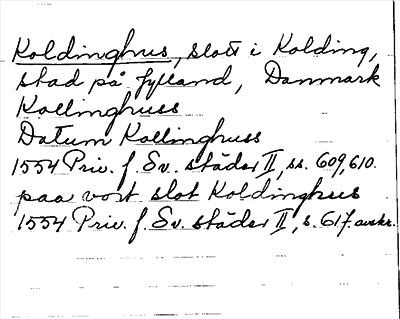 Koldinghus, slott i Kolding,
stad på Jylland, Danmark
Kollinghuss
Datum Kollinghuss
1554 Priv. f. Sv. städer II, ss. 609, 610.
paa vort slot Koldinghus
1554 Priv. f. Sv. städer II, s. 617. avskr.